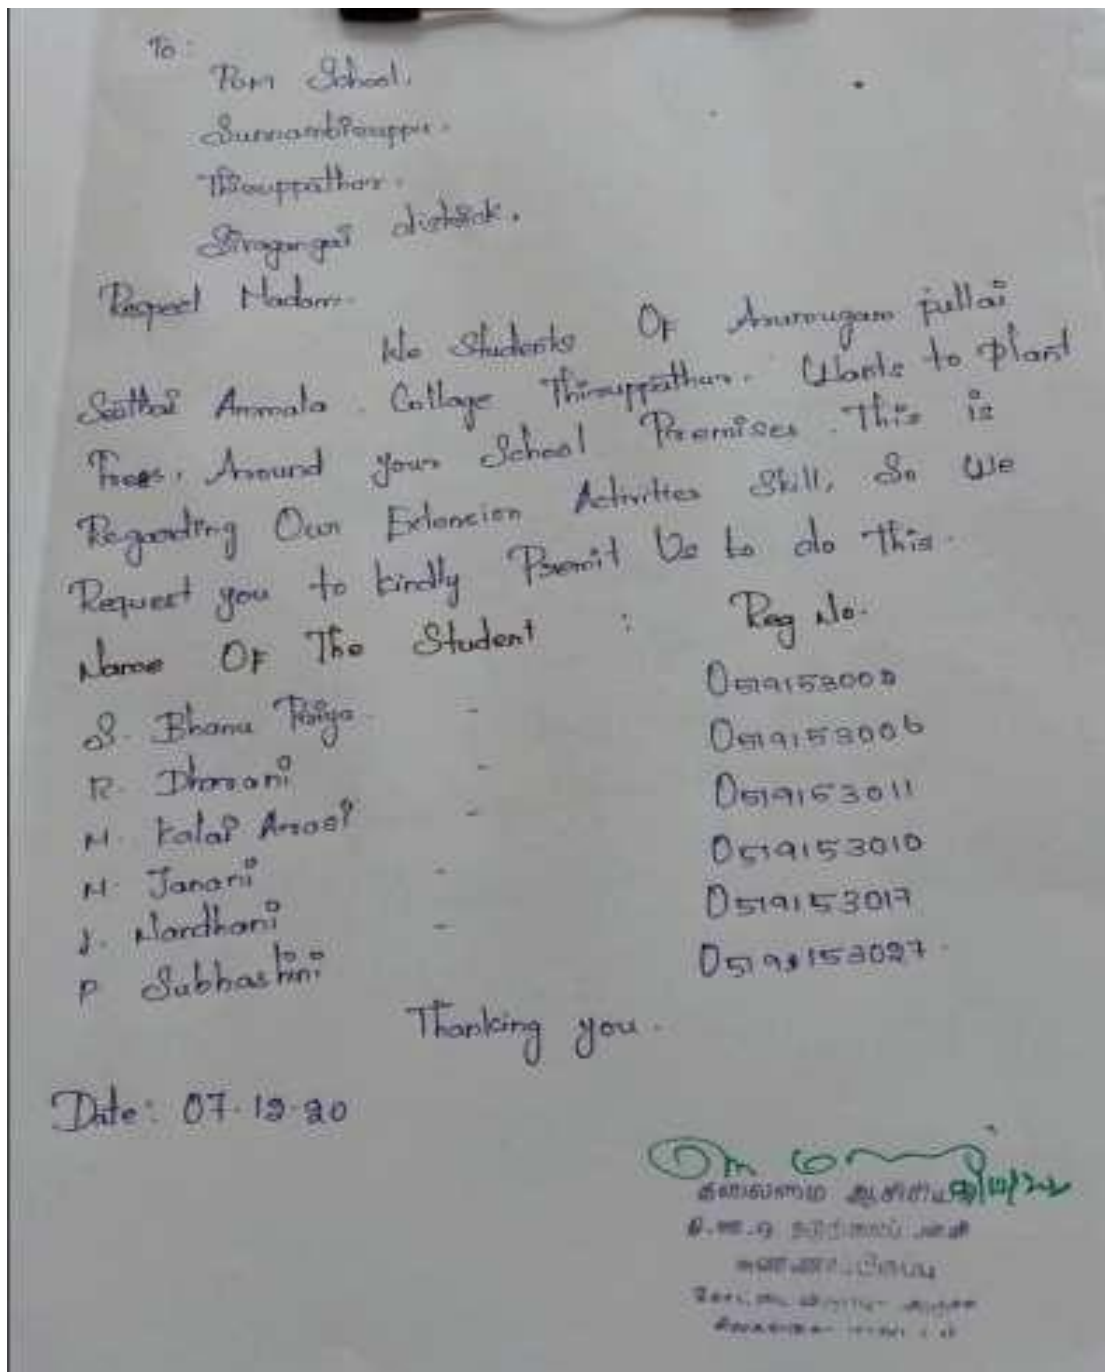 To:
School.
Sunnambiruppu.
Thiruppathur.
Sivagangai district.
Respect Madam.
We Students Of Arumugam pillai
Seethai Ammala. Collage Thiruppathur. Wants to plant
Trees. Around your School Premises. This is
Regarding Our Extension Activities Skill, So We
Request you to kindly Permit Us to do this.
Name Of The Student : Reg No.
S. Bhanu Priya - 
R. Dharani - 0519153006
M. Kalai Arasi - 0519153011
M. Janani - 0519153010
J. Nandhani - 0519153017
P Subhashini
Thanking you.
Date: 07.12.20
தலைமை